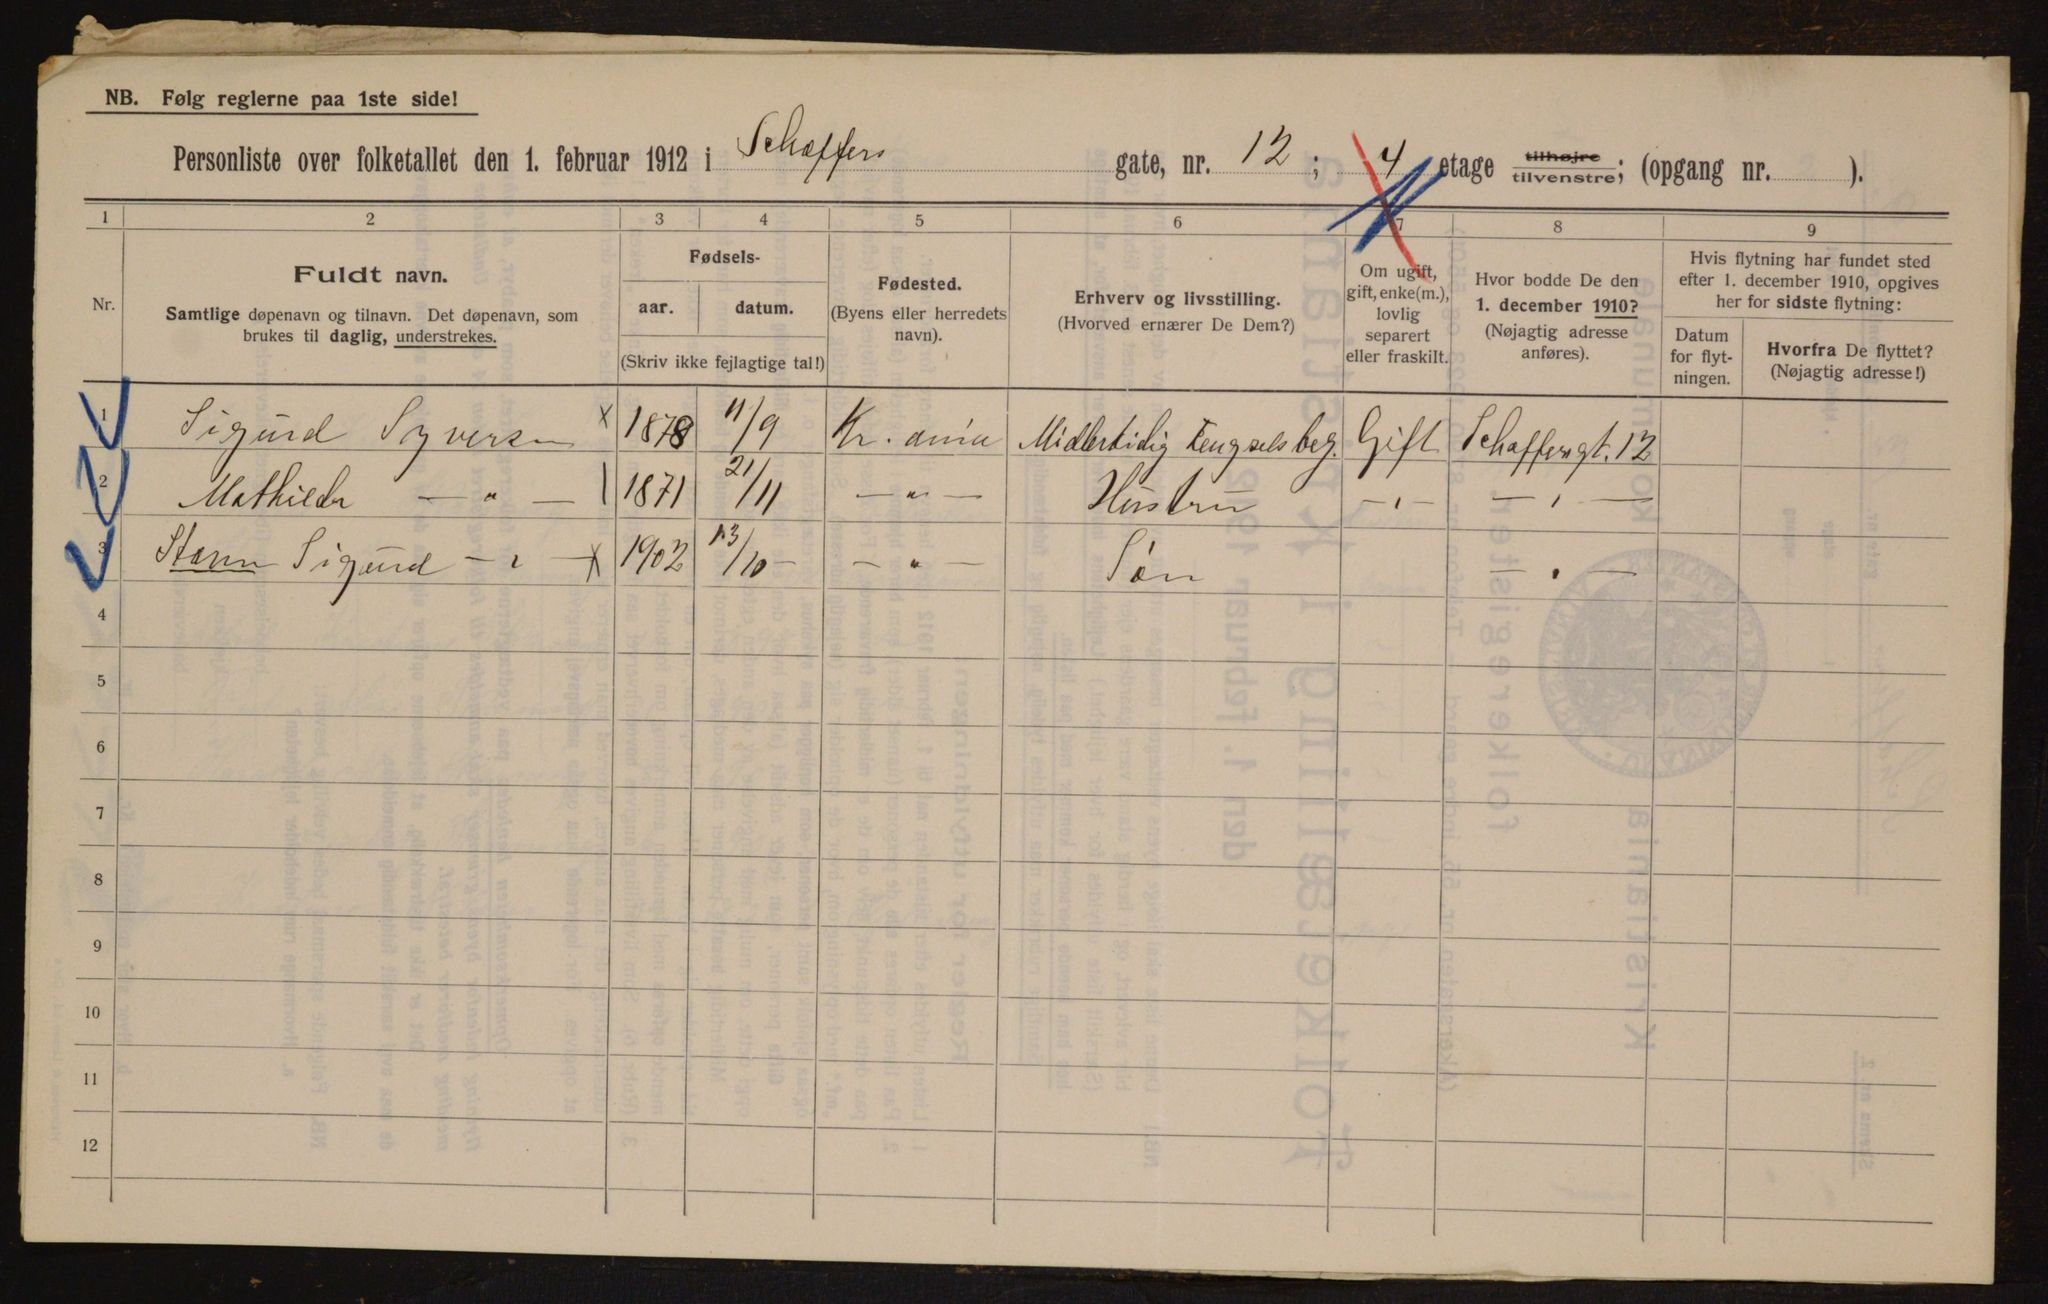 NB. Følg reglerne paa 1ste side!
Personliste over folketallet den 1. februar 1912 i Schæffers gate, nr. 12 ; 4 etage tilhøjre tilvenstre; (opgang nr. ).
1 2 3 4 5 6 7 8 9
Nr.
Fuldt navn.
Samtlige døpenavn og tilnavn. Det døpenavn, som
brukes til daglig, understrekes.
Fødsels-
aar. datum.
(Skriv ikke fejlagtige tal!)
Fødested.
(Byens eller herredets
navn).
Erhverv og livsstilling.
(Hvorved ernærer De Dem?)
Om ugift,
gift, enke(m.),
lovlig
separert
eller fraskilt.
Hvor bodde De den
1. december 1910?
(Nøjagtig adresse
anføres).
Hvis flytning har fundet sted
efter 1. december 1910, opgives
her for sidste flytning:
Datum
for flyt-
ningen.
Hvorfra De flyttet?
(Nøjagtig adresse!)
1 Sigurd Syversen × 1878 11/9 Kr. ania Midlertidig Fengselsbeg. Gift Schæffersgt. 12
2 Mathilde — " — 1871 21/11 — " — Hustru — " — — " —
3 Sigurd — " — × 1902 13/10 — " — Søn — " —
4
5
6
7
8
9
10
11
12